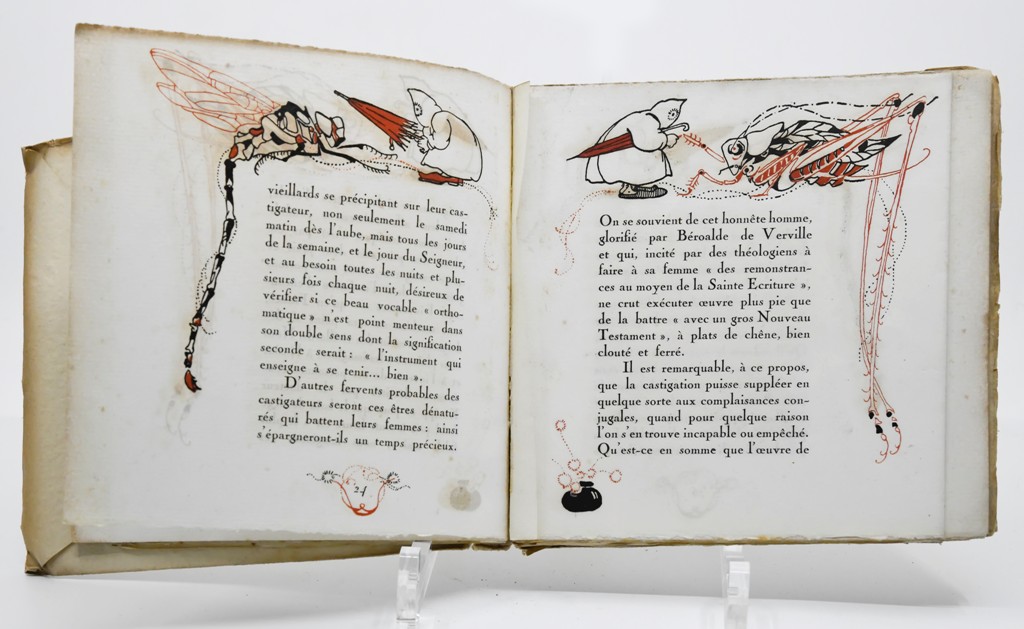 vieillards se précipitant sur leur cas-
tigateur, non seulement le samedi
matin dès l'aube, mais tous les jours
de la semaine, et le jour du Seigneur,
et au besoin toutes les nuits et plu-
sieurs fois chaque nuit, désireux de
vérifier si ce beau vocable « ortho-
matique » n'est point menteur dans
son double sens dont la signification
seconde serait : « l'instrument qui
enseigne à se tenir... bien ».
D'autres fervents probables des
castigateurs seront ces êtres dénatu-
rés qui battent leurs femmes : ainsi
s'épargneront-ils un temps précieux.
24
On se souvient de cet honnête homme,
glorifié par Béroalde de Verville
et qui, incité par des théologiens à
faire à sa femme « des remontran-
ces au moyen de la Sainte Ecriture »,
ne crut exécuter œuvre plus pie que
de la battre « avec un gros Nouveau
Testament », à plats de chêne, bien
clouté et ferré.
Il est remarquable, à ce propos,
que la castigation puisse suppléer en
quelque sorte aux complaisances con-
jugales, quand pour quelque raison
l'on s'en trouve incapable ou empêché.
Qu'est-ce en somme que l'œuvre de